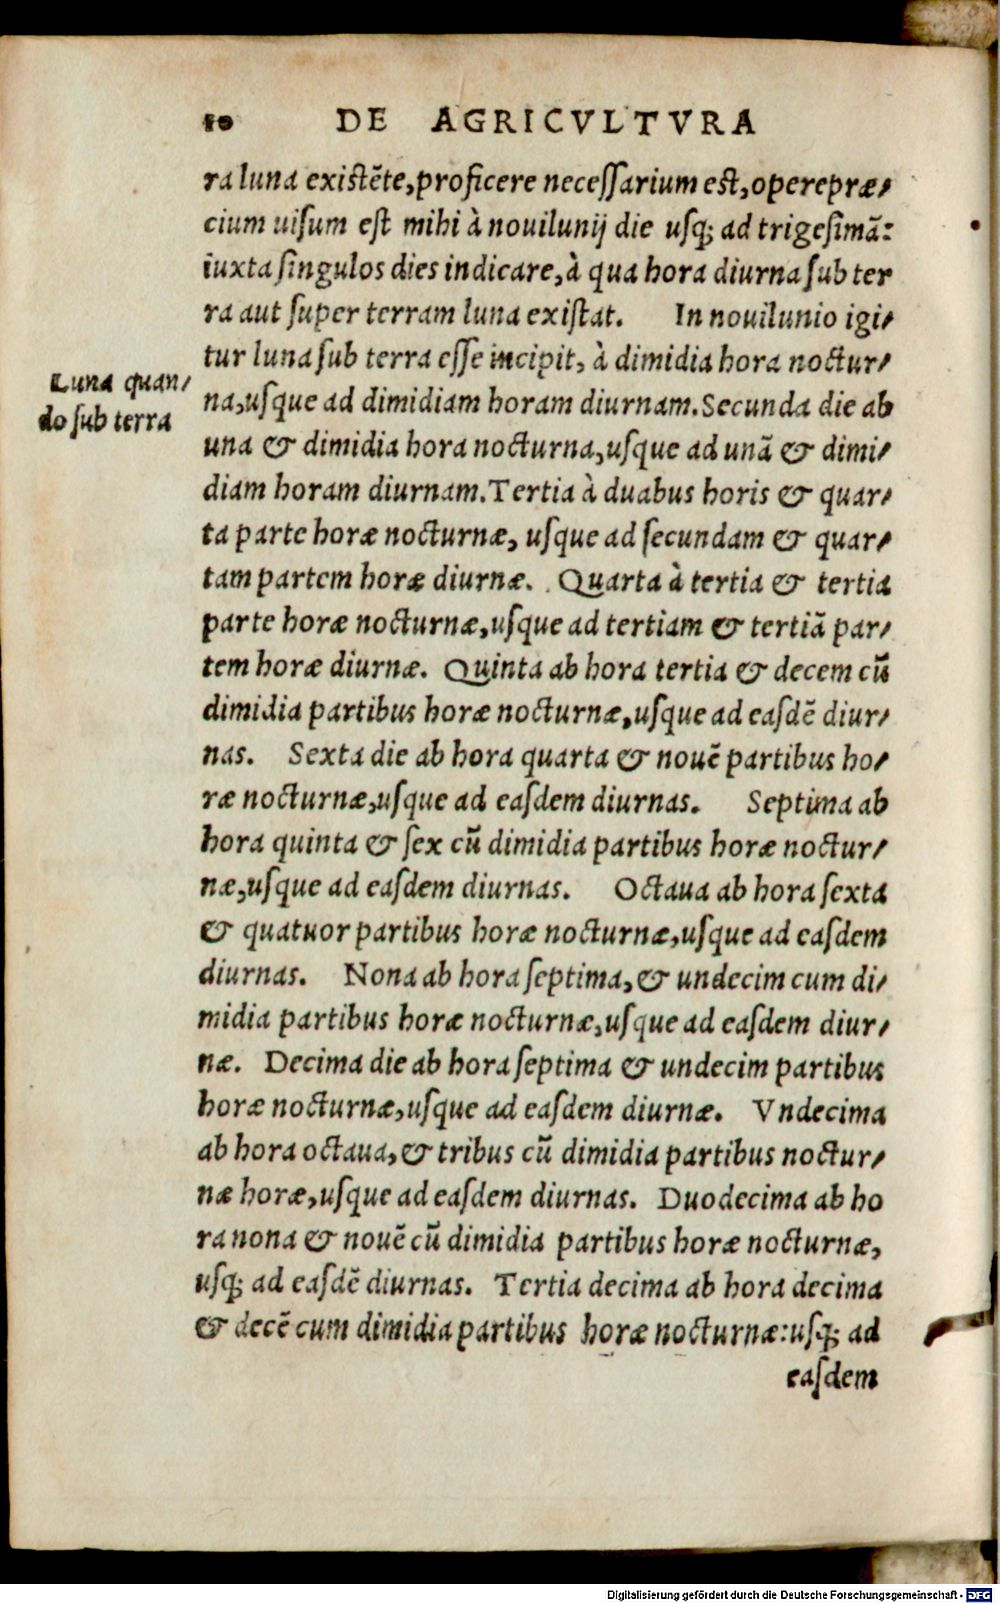 10 DE AGRICVLTVRA
ra luna existẽte, proficere necessarium est, operepræ-
cium uisum est mihi à nouilunij die usq; ad trigesimã:
iuxta singulos dies indicare, à qua hora diurna sub ter
ra aut super terram luna existat. In nouilunio igi-
tur luna sub terra esse incipit, à dimidia hora noctur-
Luna quan-
do sub terra
na, usque ad dimidiam horam diurnam. Secunda die ab
una & dimidia hora nocturna, usque ad unã & dimi-
diam horam diurnam. Tertia à duabus horis & quar-
ta parte horæ nocturnæ, usque ad secundam & quar-
tam partem horæ diurnæ. Quarta à tertia & tertia
parte horæ nocturnæ, usque ad tertiam & tertiã par-
tem horæ diurnæ. Quinta ab hora tertia & decem cũ
dimidia partibus horæ nocturnæ, usque ad easdẽ diur-
nas. Sexta die ab hora quarta & nouẽ partibus ho-
ræ nocturnæ, usque ad easdem diurnas. Septima ab
hora quinta & sex cũ dimidia partibus horæ noctur-
næ, usque ad easdem diurnas. Octaua ab hora sexta
& quatuor partibus horæ nocturnæ, usque ad easdem
diurnas. Nona ab hora septima, & undecim cum di-
midia partibus horæ nocturnæ, usque ad easdem diur-
næ. Decima die ab hora septima & undecim partibus
horæ nocturnæ, usque ad easdem diurnæ. Vndecima
ab hora octaua, & tribus cũ dimidia partibus noctur-
næ horæ, usque ad easdem diurnas. Duodecima ab ho
ra nona & nouẽ cũ dimidia partibus horæ nocturnæ,
usq; ad easdẽ diurnas. Tertia decima ab hora decima
& decẽ cum dimidia partibus horæ nocturnæ: usq; ad
easdem
Digitalisierung gefördert durch die Deutsche Forschungsgemeinschaft - DFG